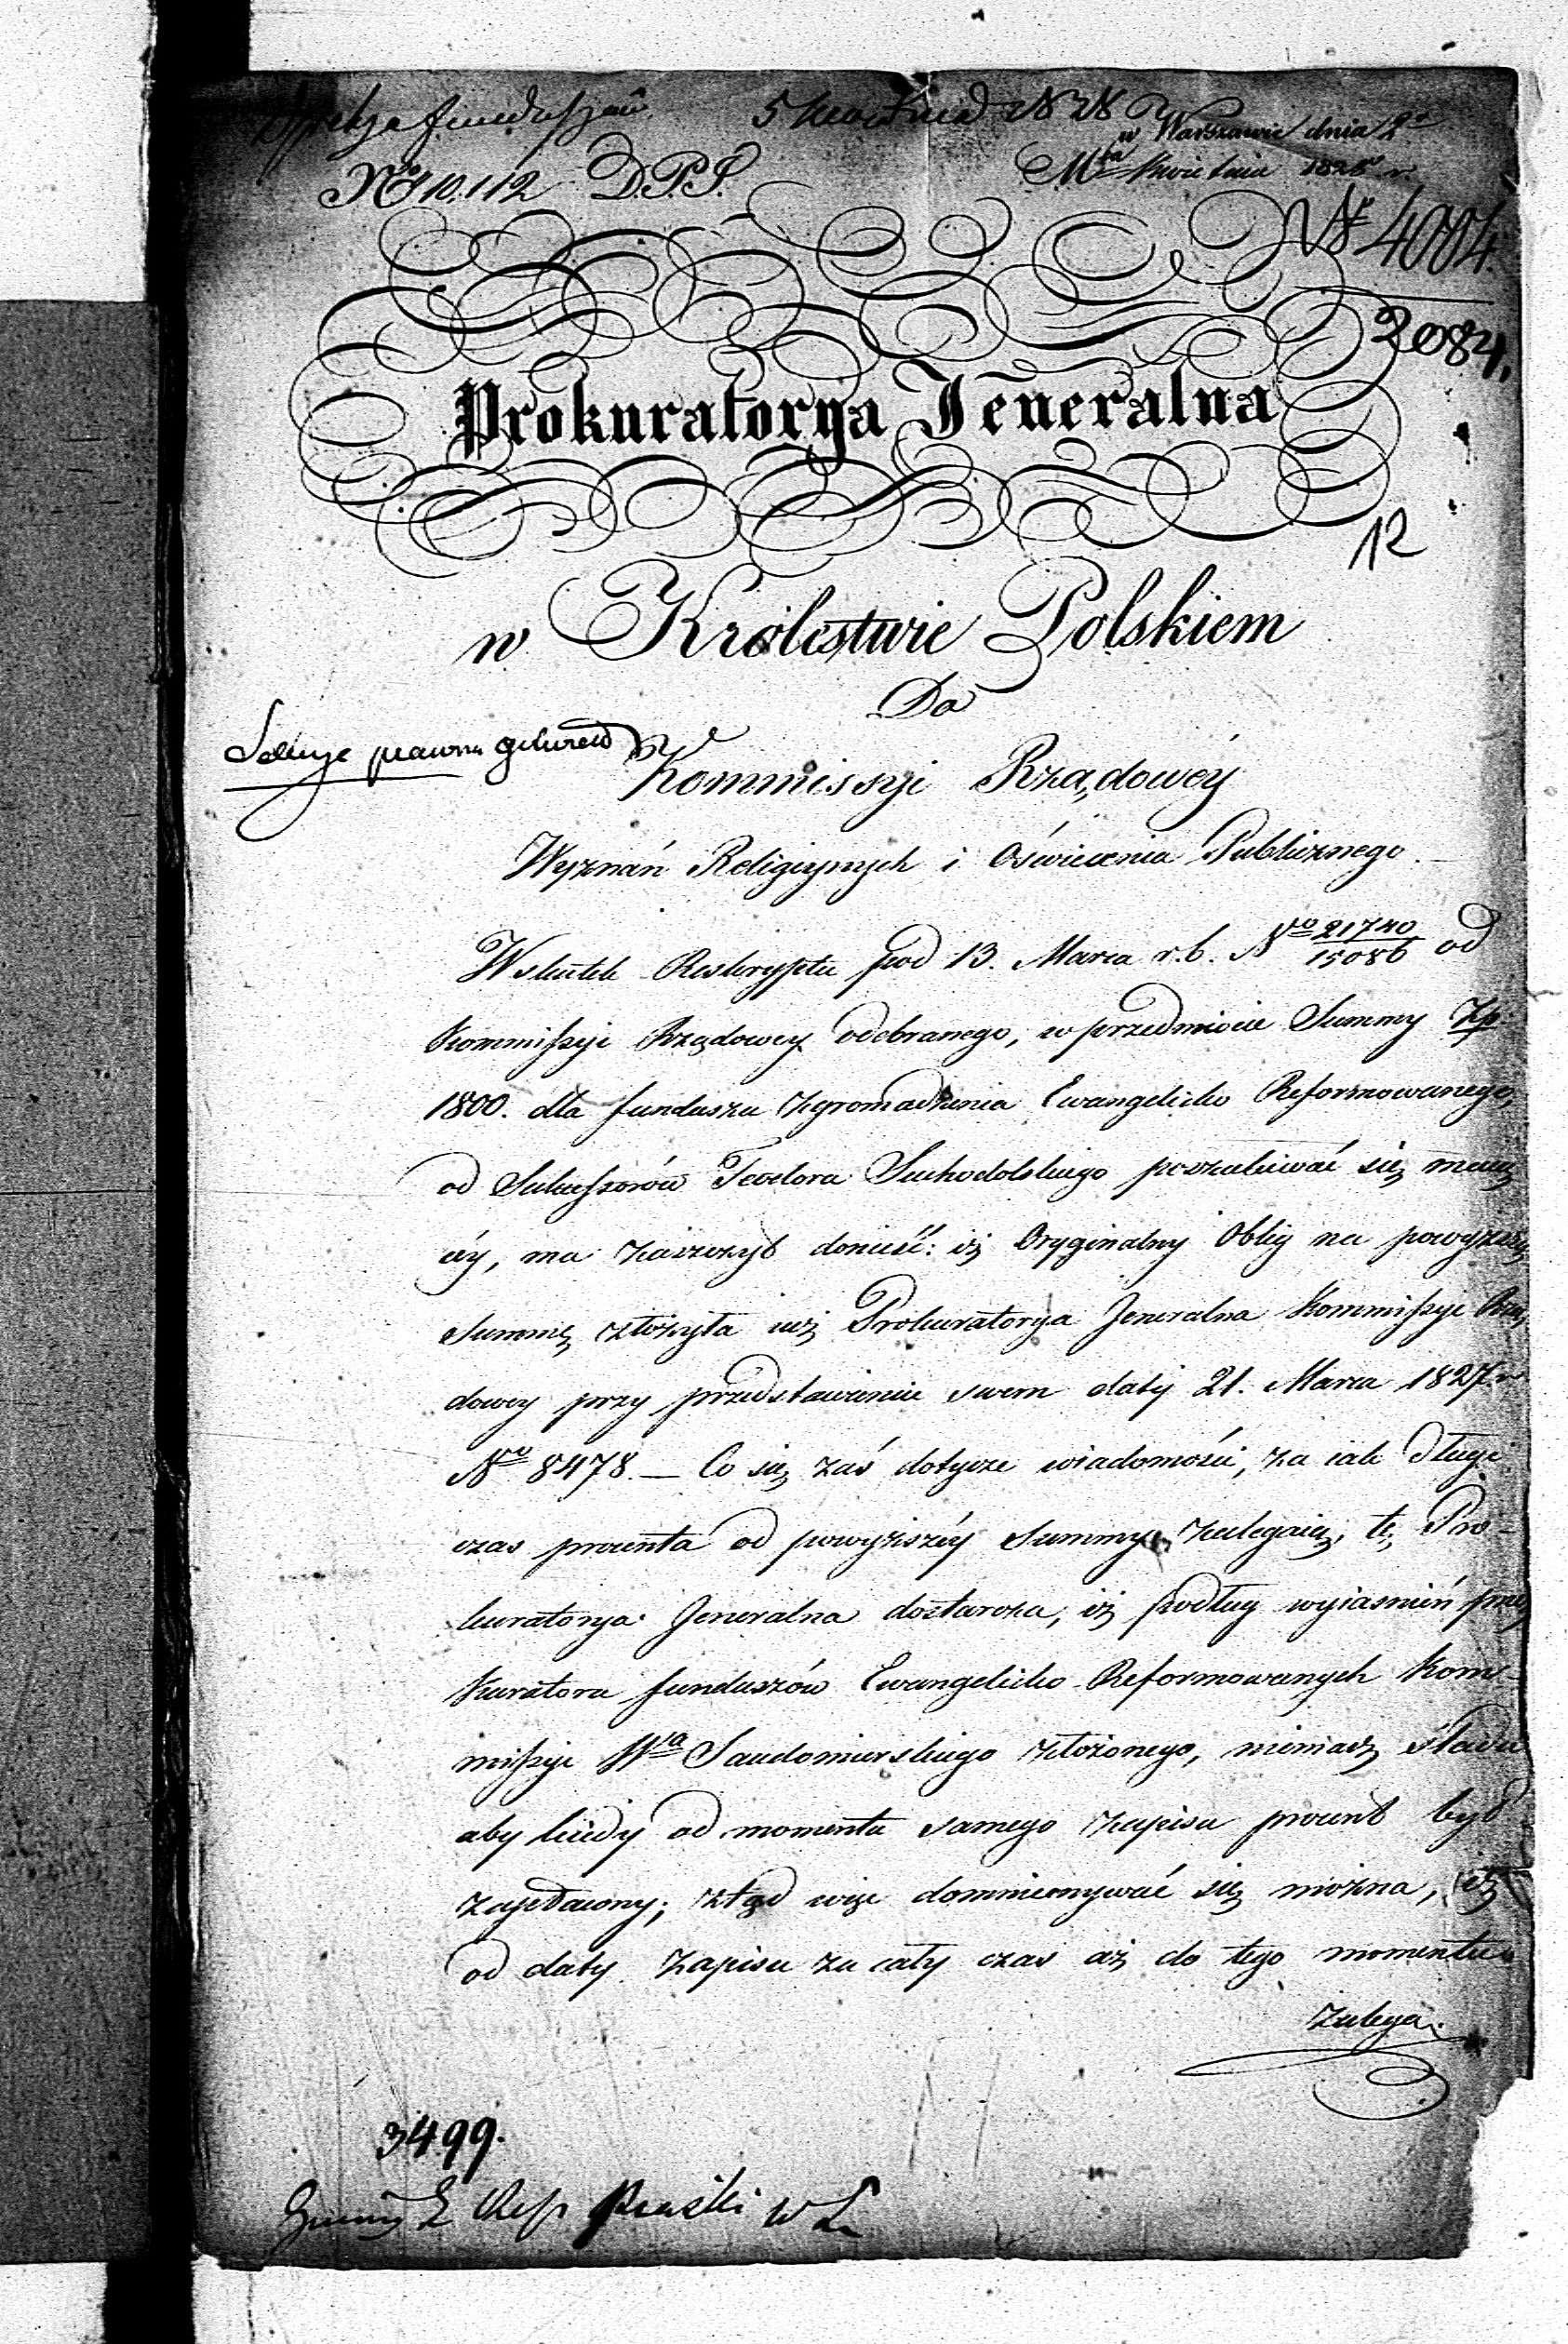 5 Kwietnia 1828
w Warszawie dnia 2º
Mca Kwietnia 1828 r.
No 10.112 D.P.S.
Nr 4004.
2084.
Prokuratorya Jeneralna
12
w Królestwie Polskiem
Do
Sekcye prawne
Kommissyi Rządowéy
Wyznań Religiynych i Oświecenia Publicznego.
Wskutek Reskryptu pod 13. Marca r.b. No 21740/15086 od
Kommissyi Rządowey odebranego, w przedmiocie Summy Zp.
1800. dla funduszu Zgromadzenia Ewangelicko Reformowanego,
od Sukcessorów Teodora Suchodolskiego poszukiwać się maią
céy, ma zaszczyt donieść: iż Oryginalny Oblig na powyższą
Summę złożyła iuż Prokuratorya Jeneralna Kommissyi Rzą
dowey przy przedstawieniu swem daty 21. Marca 1827 r.
No 8478. — Co się zaś dotycze wiadomości, za iak długi
czas procenta od powyższéy Summy zalegaią, tę Pro-
kuratorya Jeneralna dostarcza, iż podług wyiasnień przez
Kuratora funduszów Ewangelicko-Reformowanych Kom-
missyi Wa Sandomierskiego złożonego, niemasz śladu
aby kiedy od momentu samego zapisu procent był
zapłacony; ztąd więc domniemywać się można, iż
od daty zapisu za cały czas aż do tego momentu
zalega.
3499.